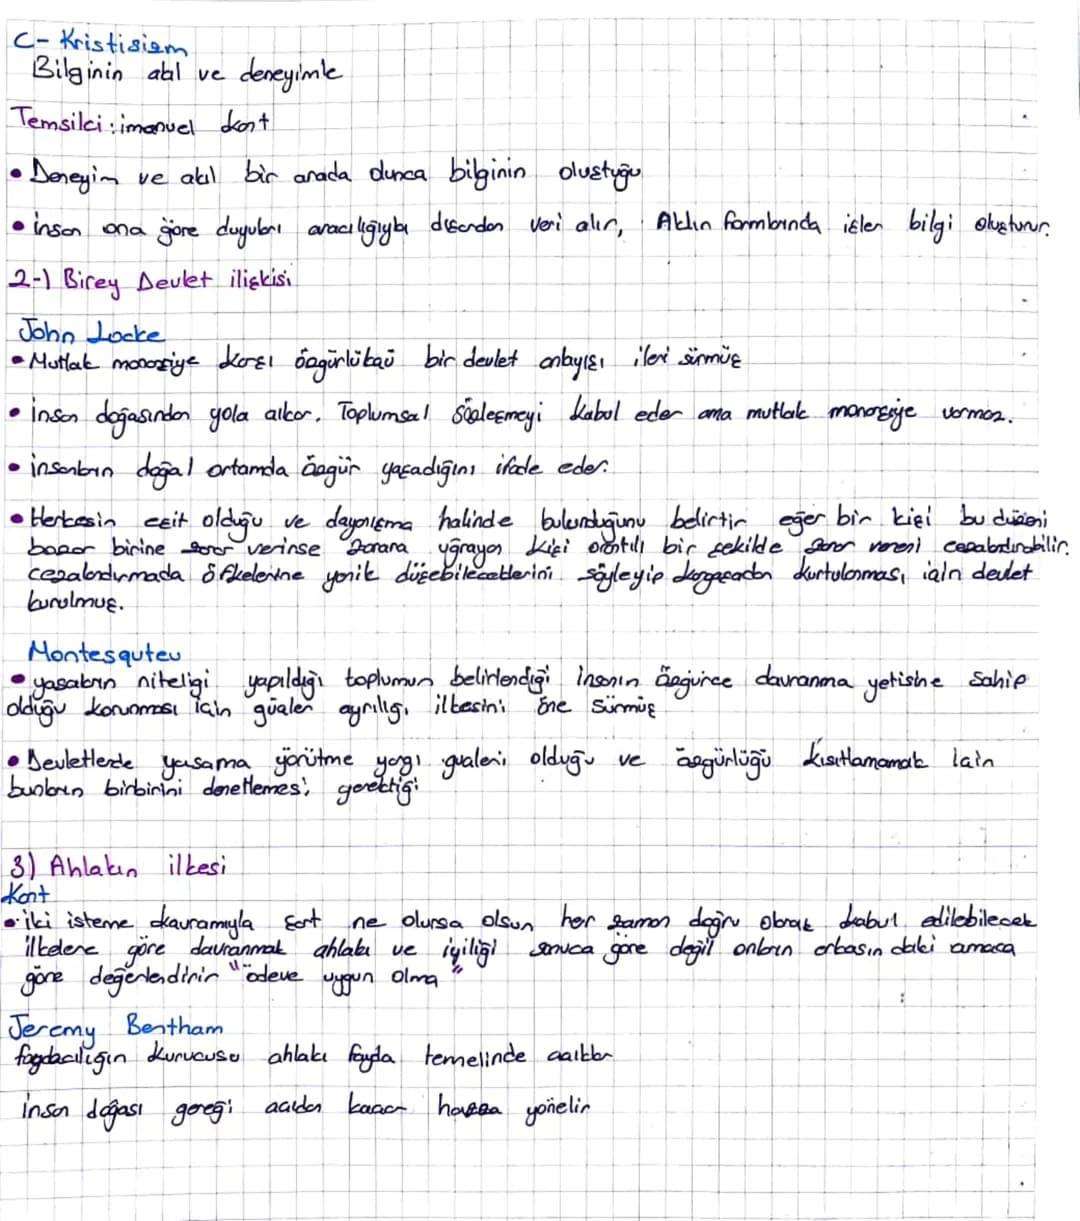 C- Kristisizm
Bilginin akıl ve deneyimle
Temsilci: imanuel kant
• Deneyim ve akıl bir arada olunca bilginin oluştuğu
• insan ona göre duyuları aracılığıyla dışardan veri alır, Aklın formlarında işler bilgi oluşturur.
2-) Birey Devlet ilişkisi
John Locke
• Mutlak monarşiye karşı özgürlükçü bir devlet anlayışı ileri sürmüş
• insan doğasından yola çıkar. Toplumsal sözleşmeyi kabul eder ama mutlak monarşiye varmaz.
• insanların doğal ortamda özgür yaşadığını ifade eder.
• Herkesin eşit olduğu ve dayanışma halinde bulunduğunu belirtir eğer bir kişi bu düzeni
bozar birine zarar verirse zarara uğrayan kişi orantılı bir şekilde zarar vereni cezalandırabilir.
cezalandırmada öfkelerine yenik düşebileceklerini söyleyip kargaşadan kurtulunması için devlet
kurulmuş.
Montesquteu
• yasaların niteliği yapıldığı toplumun belirlendiği insanın özgürce davranma yetisine sahip
olduğu korunması için güçler ayrılığı ilkesini öne sürmüş
• Devletlerde yasama yürütme yargı güçleri olduğu ve özgürlüğü kısıtlamamak için
bunların birbirini denetlemesi gerektiği
3) Ahlakın ilkesi
Kant
• iki isteme kavramıyla şart ne olursa olsun her zaman doğru olarak kabul edilebilecek
ilkelere göre davranmak ahlakı ve iyiliği sonuca göre değil onların arkasın daki amaca
göre değerlendirir "ödeve uygun olma"
Jeremy Bentham
faydacılığın kurucusu ahlakı fayda temelinde açıklar
insan doğası gereği acıdan kaçar hazza yönelir